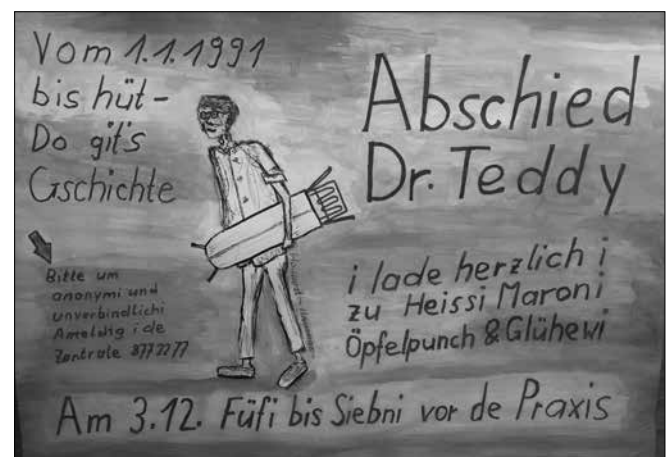 Vom 1.1.1991
bis hüt-
Do git's
Gschichte
Abschied
Dr. Teddy
Bitte um
anonymi und
unverbindlichi
Amäldig i de
Zentrale 877 22 77
i lade herzlich i
zu Heissi Maroni
Öpfelpunch & Glühewi
Am 3.12. Füfi bis Siebni vor de Praxis